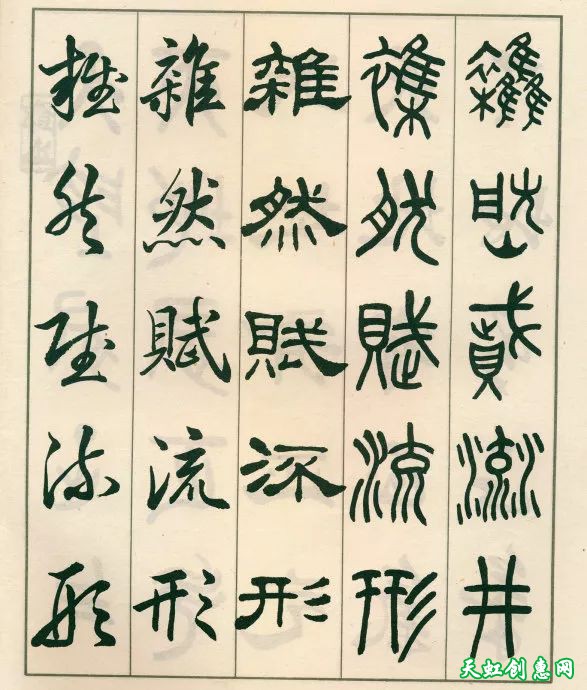 雜然賦流形
雜然賦流形
雜然賦流形
雜然賦流形
雜然賦流形
天虹创意网